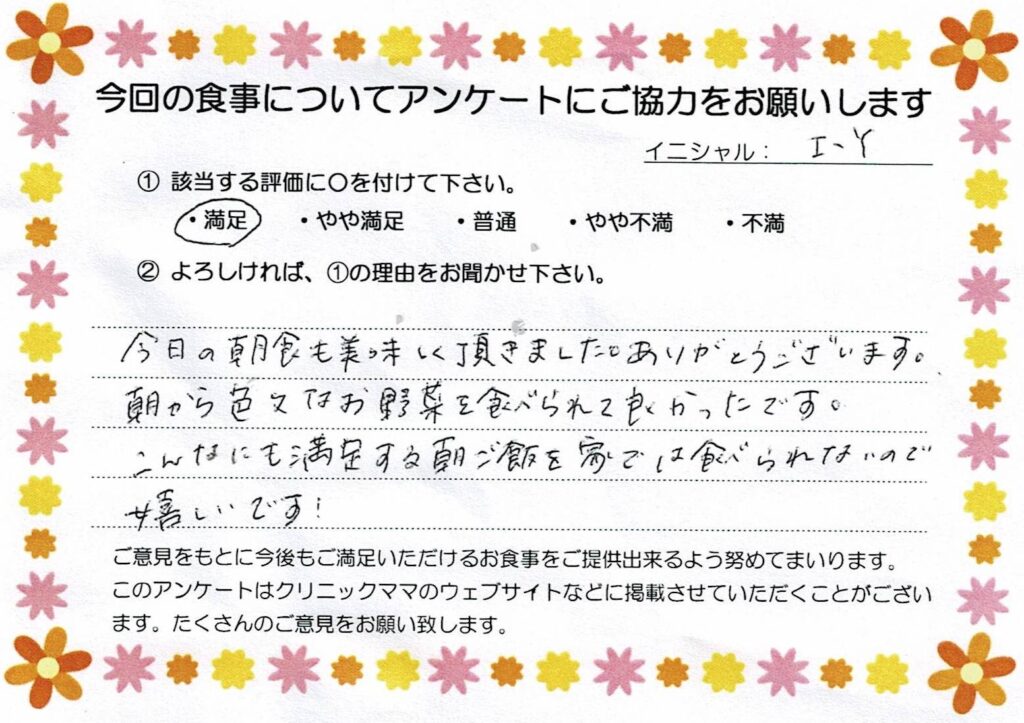 今回の食事についてアンケートにご協力をお願いします
イニシャル： I-Y
① 該当する評価に〇を付けて下さい。
・満足 ・やや満足 ・普通 ・やや不満 ・不満
② よろしければ、①の理由をお聞かせ下さい。
今日の朝食も美味しく頂きました。ありがとうございます。
朝から色々なお野菜を食べられて良かったです。
こんなにも満足する朝ご飯を家では食べられないので
嬉しいです!
ご意見をもとに今後もご満足いただけるお食事をご提供出来るよう努めてまいります。
このアンケートはクリニックママのウェブサイトなどに掲載させていただくことがござい
ます。たくさんのご意見をお願い致します。